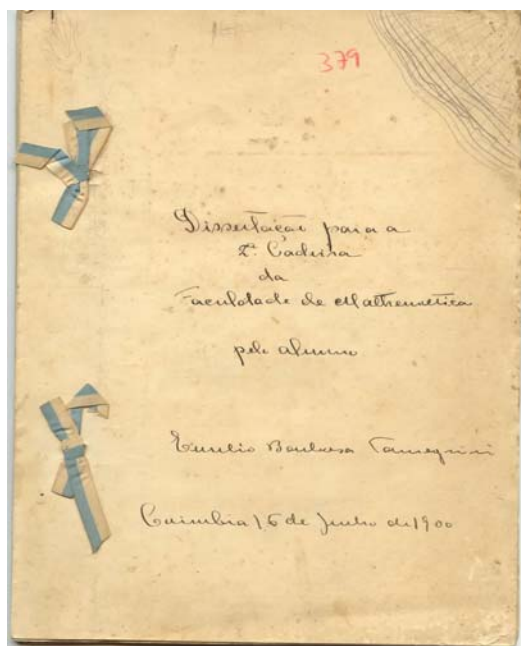 379
Dissertação para a
2ª Cadeira
da
Faculdade de Mathematica
pelo alumno
Barbosa Tamagnini
Coimbra 16 de Junho de 1900